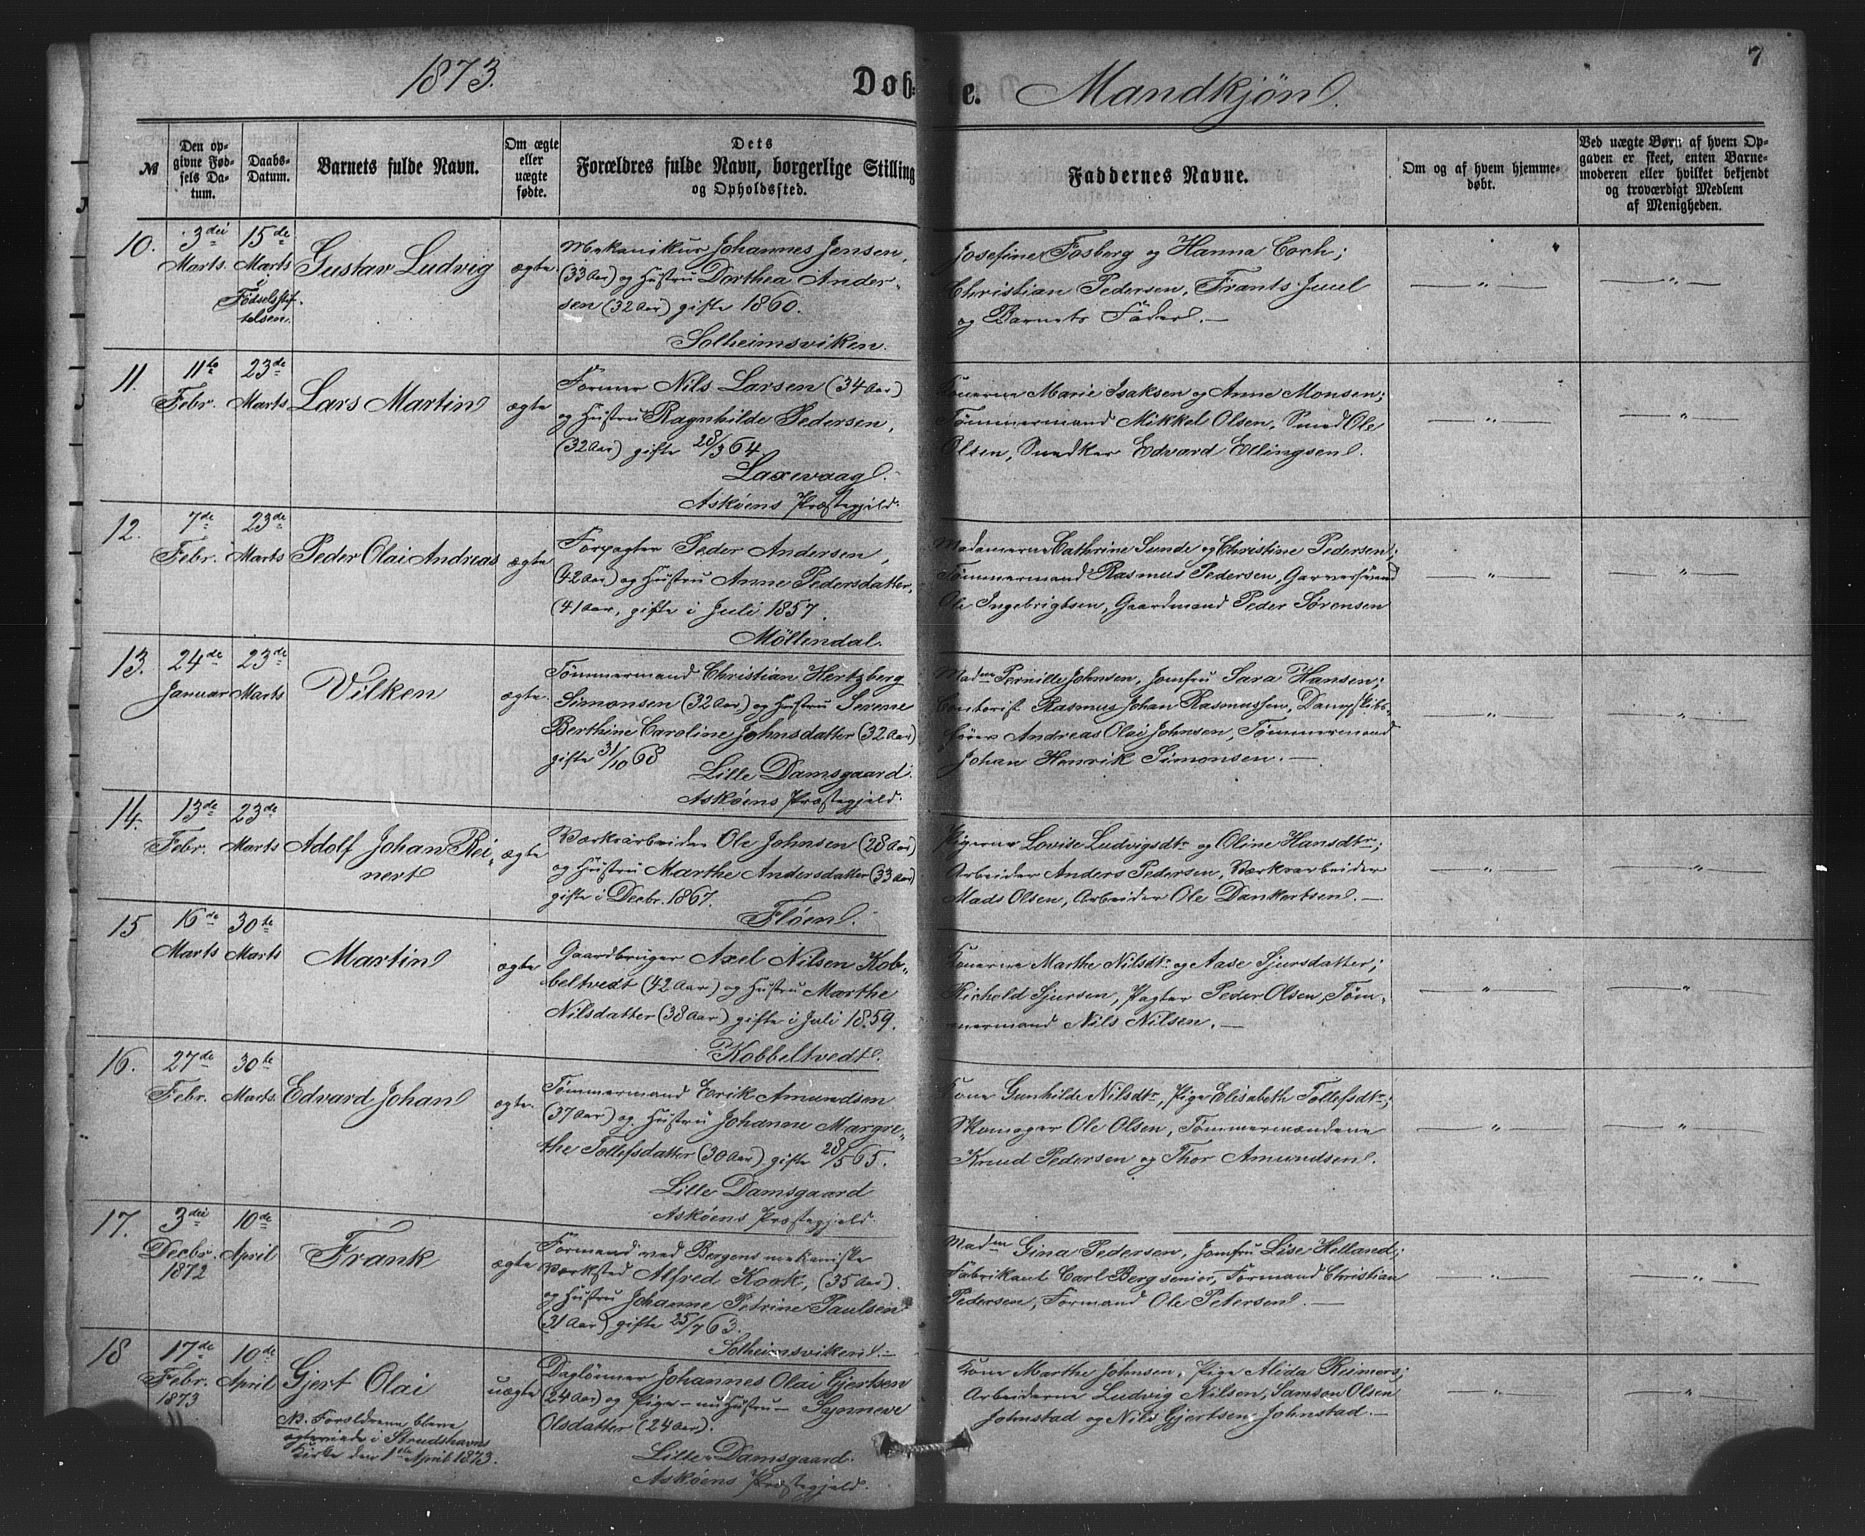 1873.
Døbte. Mandkjøn.
7
№
Den opgivne Fødsels Datum.
Daabs-Datum.
Barnets fulde Navn.
Om ægte eller uægte fødte.
Dets Forældres fulde Navn, borgerlige Stilling og Opholdssted.
Faddernes Navne.
Om og af hvem hjemmedøbt.
Ved uægte Børn af hvem Opgaven er skeet, enten Barnemoderen eller hvilket bekjendt og troværdigt Medlem af Menigheden.
10. 3die Marts. 15de Marts i Fødselsstiftelsen.
Gustav Ludvig
ægte.
Mekanikur Johannes Jensen,
(33 Aar) og Hustru Dorthea Ander-
sen (32 Aar) gifte 1860.
Solheimsviken.
Josefine Fosberg og Hanna Corh;
Christian Pedersen, Frants Juul
og Barnets Fader. —
— " —
— " —
11. 11te Febr. 23de Marts
Lars Martin
ægte
Former Nils Larsen (34 Aar)
og Hustru Ragnhilde Pedersen,
(32 Aar) gifte 28/3 64.
Laxevaag.
Askøens Præstegjeld.
Konerne Marie Isaksen og Anne Monsen;
Tømmermand Mikkel Olsen, Smed Ole
Olsen, Snedker Edvard Ellingsen.
— " —
— " —
12. 7de Febr. 23de Marts
Peder Olai Andreas
ægte
Forpagter Peder Andersen,
(42 Aar) og Hustru Anne Pedersdatter,
(41 Aar, gifte i Juli 1857.
Möllendal.
Madamerne Cathrine Sunde og Christine Pedersen;
Tømmermand Rasmus Pedersen, Garversvend
Ole Ingebrigtsen, Gaardmand Peder Sørensen
— " —
— " —
13. 24de Januar 23de Marts
Vilken
ægte.
Tømmermand Christian Hertzberg
Simonsen (32 Aar) og Hustru Serene
Berthine Caroline Johnsdatter (32 Aar)
gifte 31/10 68
Lille Damsgaard.
Askøens Præstegjeld.
Madme Pernille Johnsen, Jomfru Sara Hansen;
Contorist Rasmus Johan Rasmussen, Dampskibs-
fører Andreas Olai Johnsen, Tømmermand
Johan Henrik Simonsen. —
— " —
— " —
14. 13de Febr. 23de Marts
Adolf Johan Rei-
nert
ægte
Værksarbeider Ole Johnsen (28 Aar)
og Hustru Marthe Andersdatter (33 Aar)
gifte i Decbr. 1867.
Fløen.
Pigerne Lovise Ludvigsdtr og Oline Hansdtr;
Arbeider Anders Pedersen, Værksarbeider
Mads Olsen, Arbeider Ole Dankertsen. —
— " —
— " —
15 16de Marts 30te Marts
Martin
ægte
Gaardbruger Axel Nilsen Kob-
beltvedt (42 Aar) og Hustru Marthe
Nilsdatter (38 Aar) gifte i Juli 1859.
Kobbeltvedt.
Konerne Marthe Nilsdtr og Aase Sjursdatter;
Richold Sjursen, Pagter Peder Olsen, Tøm-
mermand Nils Nilsen. —
— " —
— " —
16. 27de Febr. 30te Marts.
Edvard Johan
ægte.
Tømmermand Erik Amundsen
(37 Aar) og Hustru Johanne Margre-
the Tollefsdatter (30 Aar) gifte 28/5 65.
Lille Damsgaard
Askøens Præstegjeld.
Kone Gunhilde Nilsdtr, Pige Elisabeth Tollefsdtr;
Skomager Ole Olsen, Tømmermændene
Knud Pedersen og Thor Amundsen.
— " —
— " —
17. 3die Decbr. 1872 10de April
Frank
ægte
Formand ved Bergens mekaniske
Værksted Alfred Kook, (35 Aar).
og Hustru Johanne Petrine Paulsen
(31 Aar) gifte 25/7 63.
Solheimsviken. —
Madme Gina Pedersen, Jomfru Lise Helland;
Fabrikant Carl Berg senior, Formand Christian
Pedersen, Formand Ole Petersen. —
— " —
— " —
18 17de Febr. 1873 10de April
Gjert Olai
NB. Forældrene bleve
ægteviede i Strudshavns
Kirke den 1ste April 1873.
uægte
Daglønner Johannes Olai Gjertsen
(24 Aar) og Pige – nu Hustru – Synneve
Olsdatter (24 Aar).
Lille Damsgaard.
Askøens Præstegjeld.
Kone Marthe Johnsen, Pige Alida Reimers;
Arbeiderne Ludvig Nilsen, Samson Olsen
Johnstad og Nils Gjertsen Johnstad. —
— " —
— " —